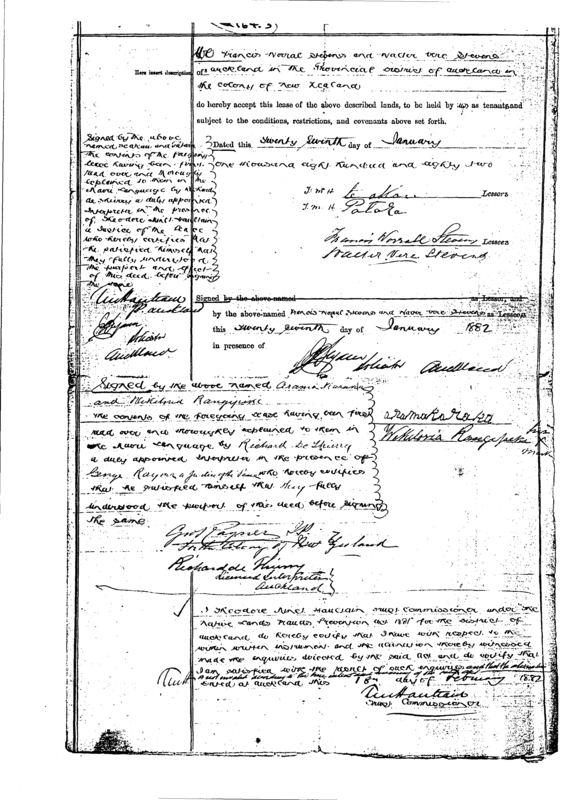 (2164.3)
We Francis Worral Stevens and Walter Vere Stevens
Here insert description
of Auckland in the Provincial District of Auckland in
the colony of New Zealand
do hereby accept this lease of the above described lands, to be held by us as tenants, and
subject to the conditions, restrictions, and covenants above set forth.
Signed by the above
named
the contents of the foregoing
lease having been first
read over and thoroughly
explained to them in the
Maori Language by Richard
de Thierry a duly appointed
Interpreter in the presence
of Theodore Minet Haultain
a Justice of the Peace
who hereby certifies that
he satisfied himself that
they fully understood
the purport and effect
of this deed before signing
the same
Dated this twenty seventh day of January
one thousand eight hundred and eighty two
T. M. H
Lessors
T. M. H Pataka
Francis Worrall Stevens Lessees
Walter Vere Stevens
TM Haultain
J.P. Auckland
Solicitor
Auckland
Signed by the above-named as Lessor, and
by the above-named Francis Worral Stevens and Walter Vere Stevens as Lessees
this twenty seventh day of January 1882
in presence of
Solicitor Auckland
Signed by the above named Arama Karaka
and Wikitoria Rangipiki
the contents of the foregoing lease having been first
read over and thoroughly explained to them in
the Maori Language by Richard de Thierry
a duly appointed Interpreter in the presence of
George Rayner a Justice of the Peace who hereby certifies
that he satisfied himself that they fully
understood the purport of this deed before signing
the same.
arama karaka
Wikitoria Rangipiki
her
x
mark
Geo Rayner JP
for the Colony of New Zealand
Richard de Thierry
Licensed Interpreter
Auckland
I Theodore Minet Haultain Trust Commissioner under the
Native Lands Frauds Prevention Act 1881 for the District of
Auckland do hereby certify that I have with respect to the
within written instrument and the alienation thereby witnessed
made the inquiries directed by the said Act and do certify that
I am satisfied with the result of such enquiries and that the
Dated at Auckland this 18th day of February 1882
TM Haultain
Trust Commissioner